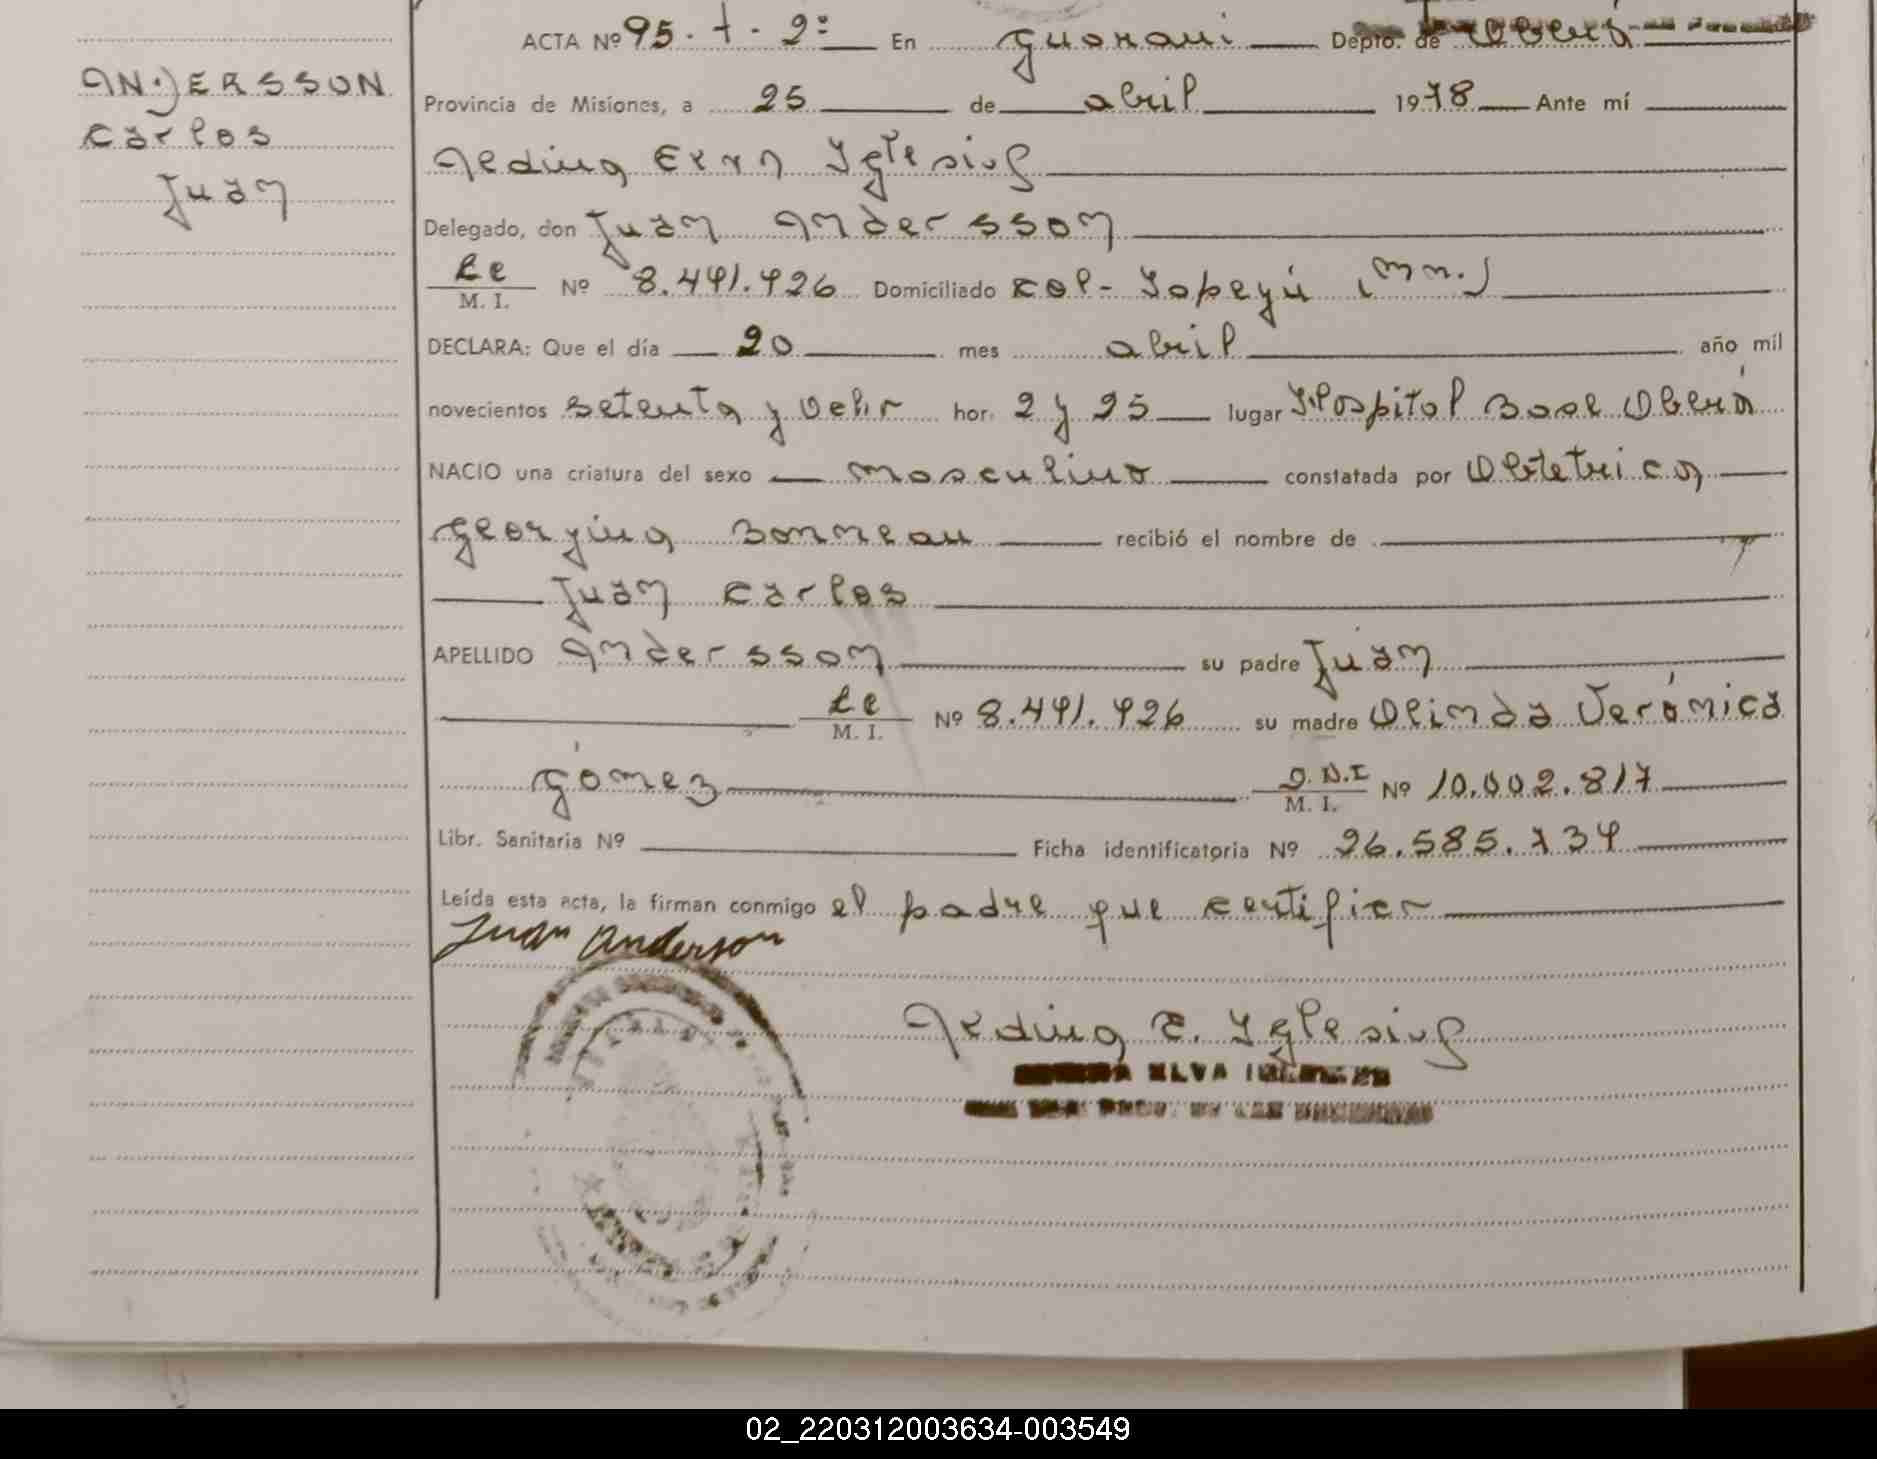 ACTA Nº 95 - t - 2º En Guarani Depto. de Oberá
ANDERSSON
Carlos
Juan
Provincia de Misiones, a 25 de abril 1978 Ante mí
Iglesias
Delegado, don Juan Andersson
LE M. I. Nº 8.491.426 Domiciliado Col- Yapeyú (Mnes.)
DECLARA: Que el día 20 mes abril año mil
novecientos setenta y ocho hor. 2 y 25 lugar Hospital Base Oberá
NACIO una criatura del sexo masculino constatada por Obstetrica
Georgina Bonneau recibió el nombre de
Juan Carlos
APELLIDO Andersson su padre Juan
LE M. I. Nº 8.491.426 su madre Olinda Verónica
Gómez D.N.I M. I. Nº 10.002.817
Libr. Sanitaria Nº Ficha identificatoria Nº 26.585.734
Leída esta acta, la firman conmigo el padre que certifico
Juan Anderson
E. Iglesias
ELVA
02_220312003634-003549